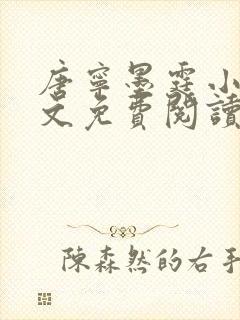 唐寧墨霆小
文免費閱讀
陳森然的右手